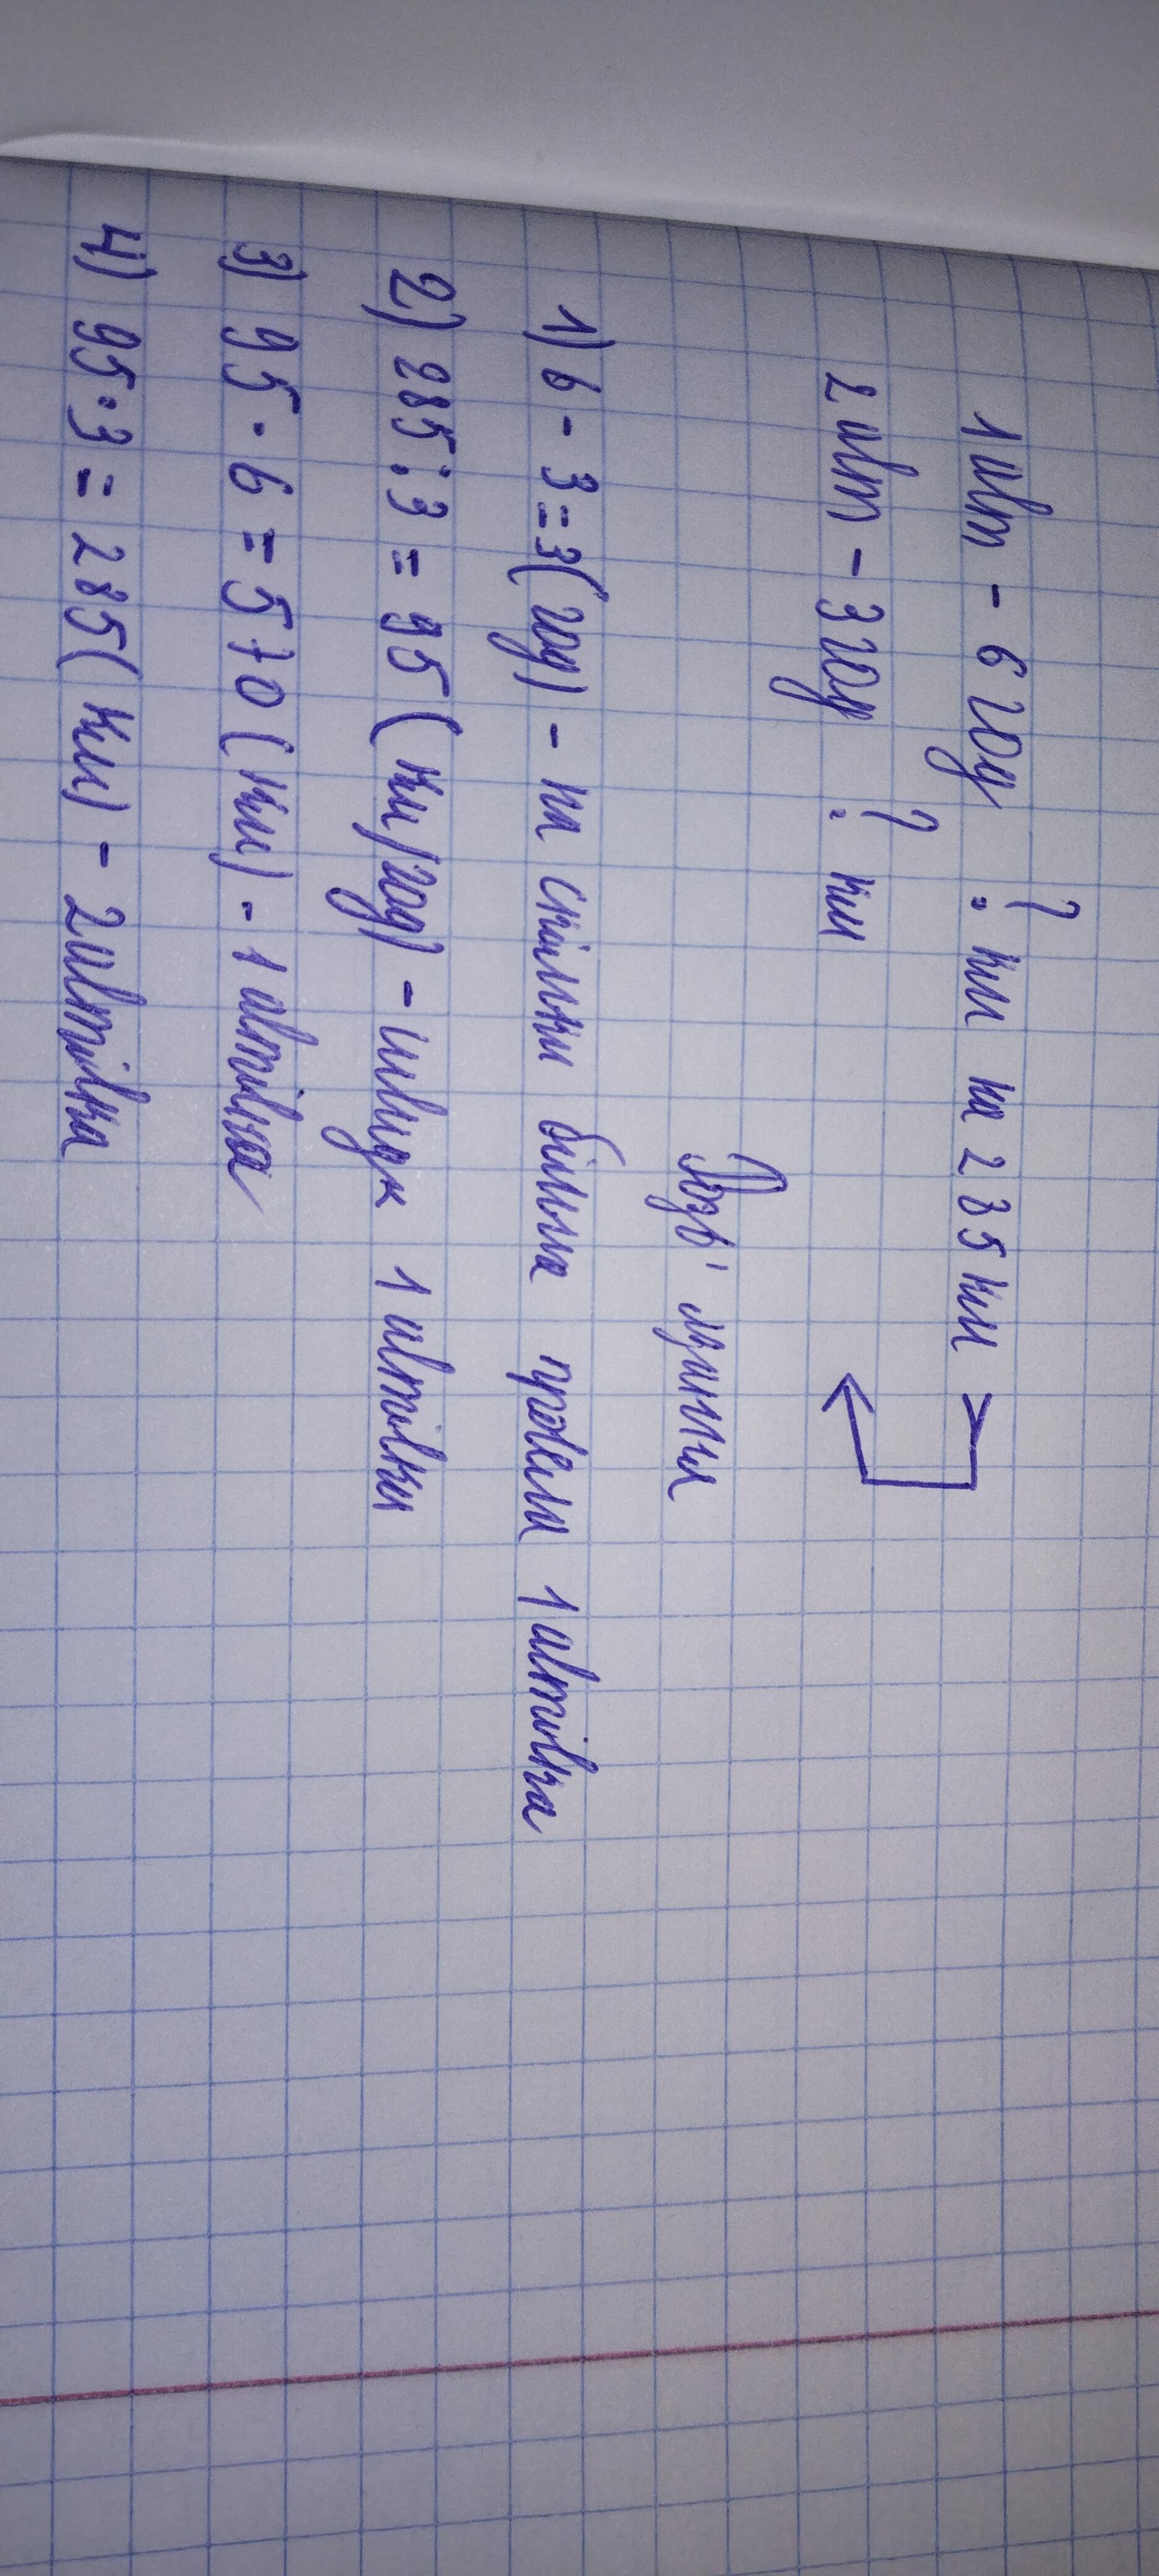 1 авт - 6 год ? км на 285 км >
2 авт - 3 год ? км
Розв'язання
1) 6 - 3 = 3 (год) - на скільки більше провели 1 автівка
2) 285 : 3 = 95 (км/год) - швидк 1 автівки
3) 95 · 6 = 570 (км) - 1 автівка
4) 95 · 3 = 285 (км) - 2 автівка